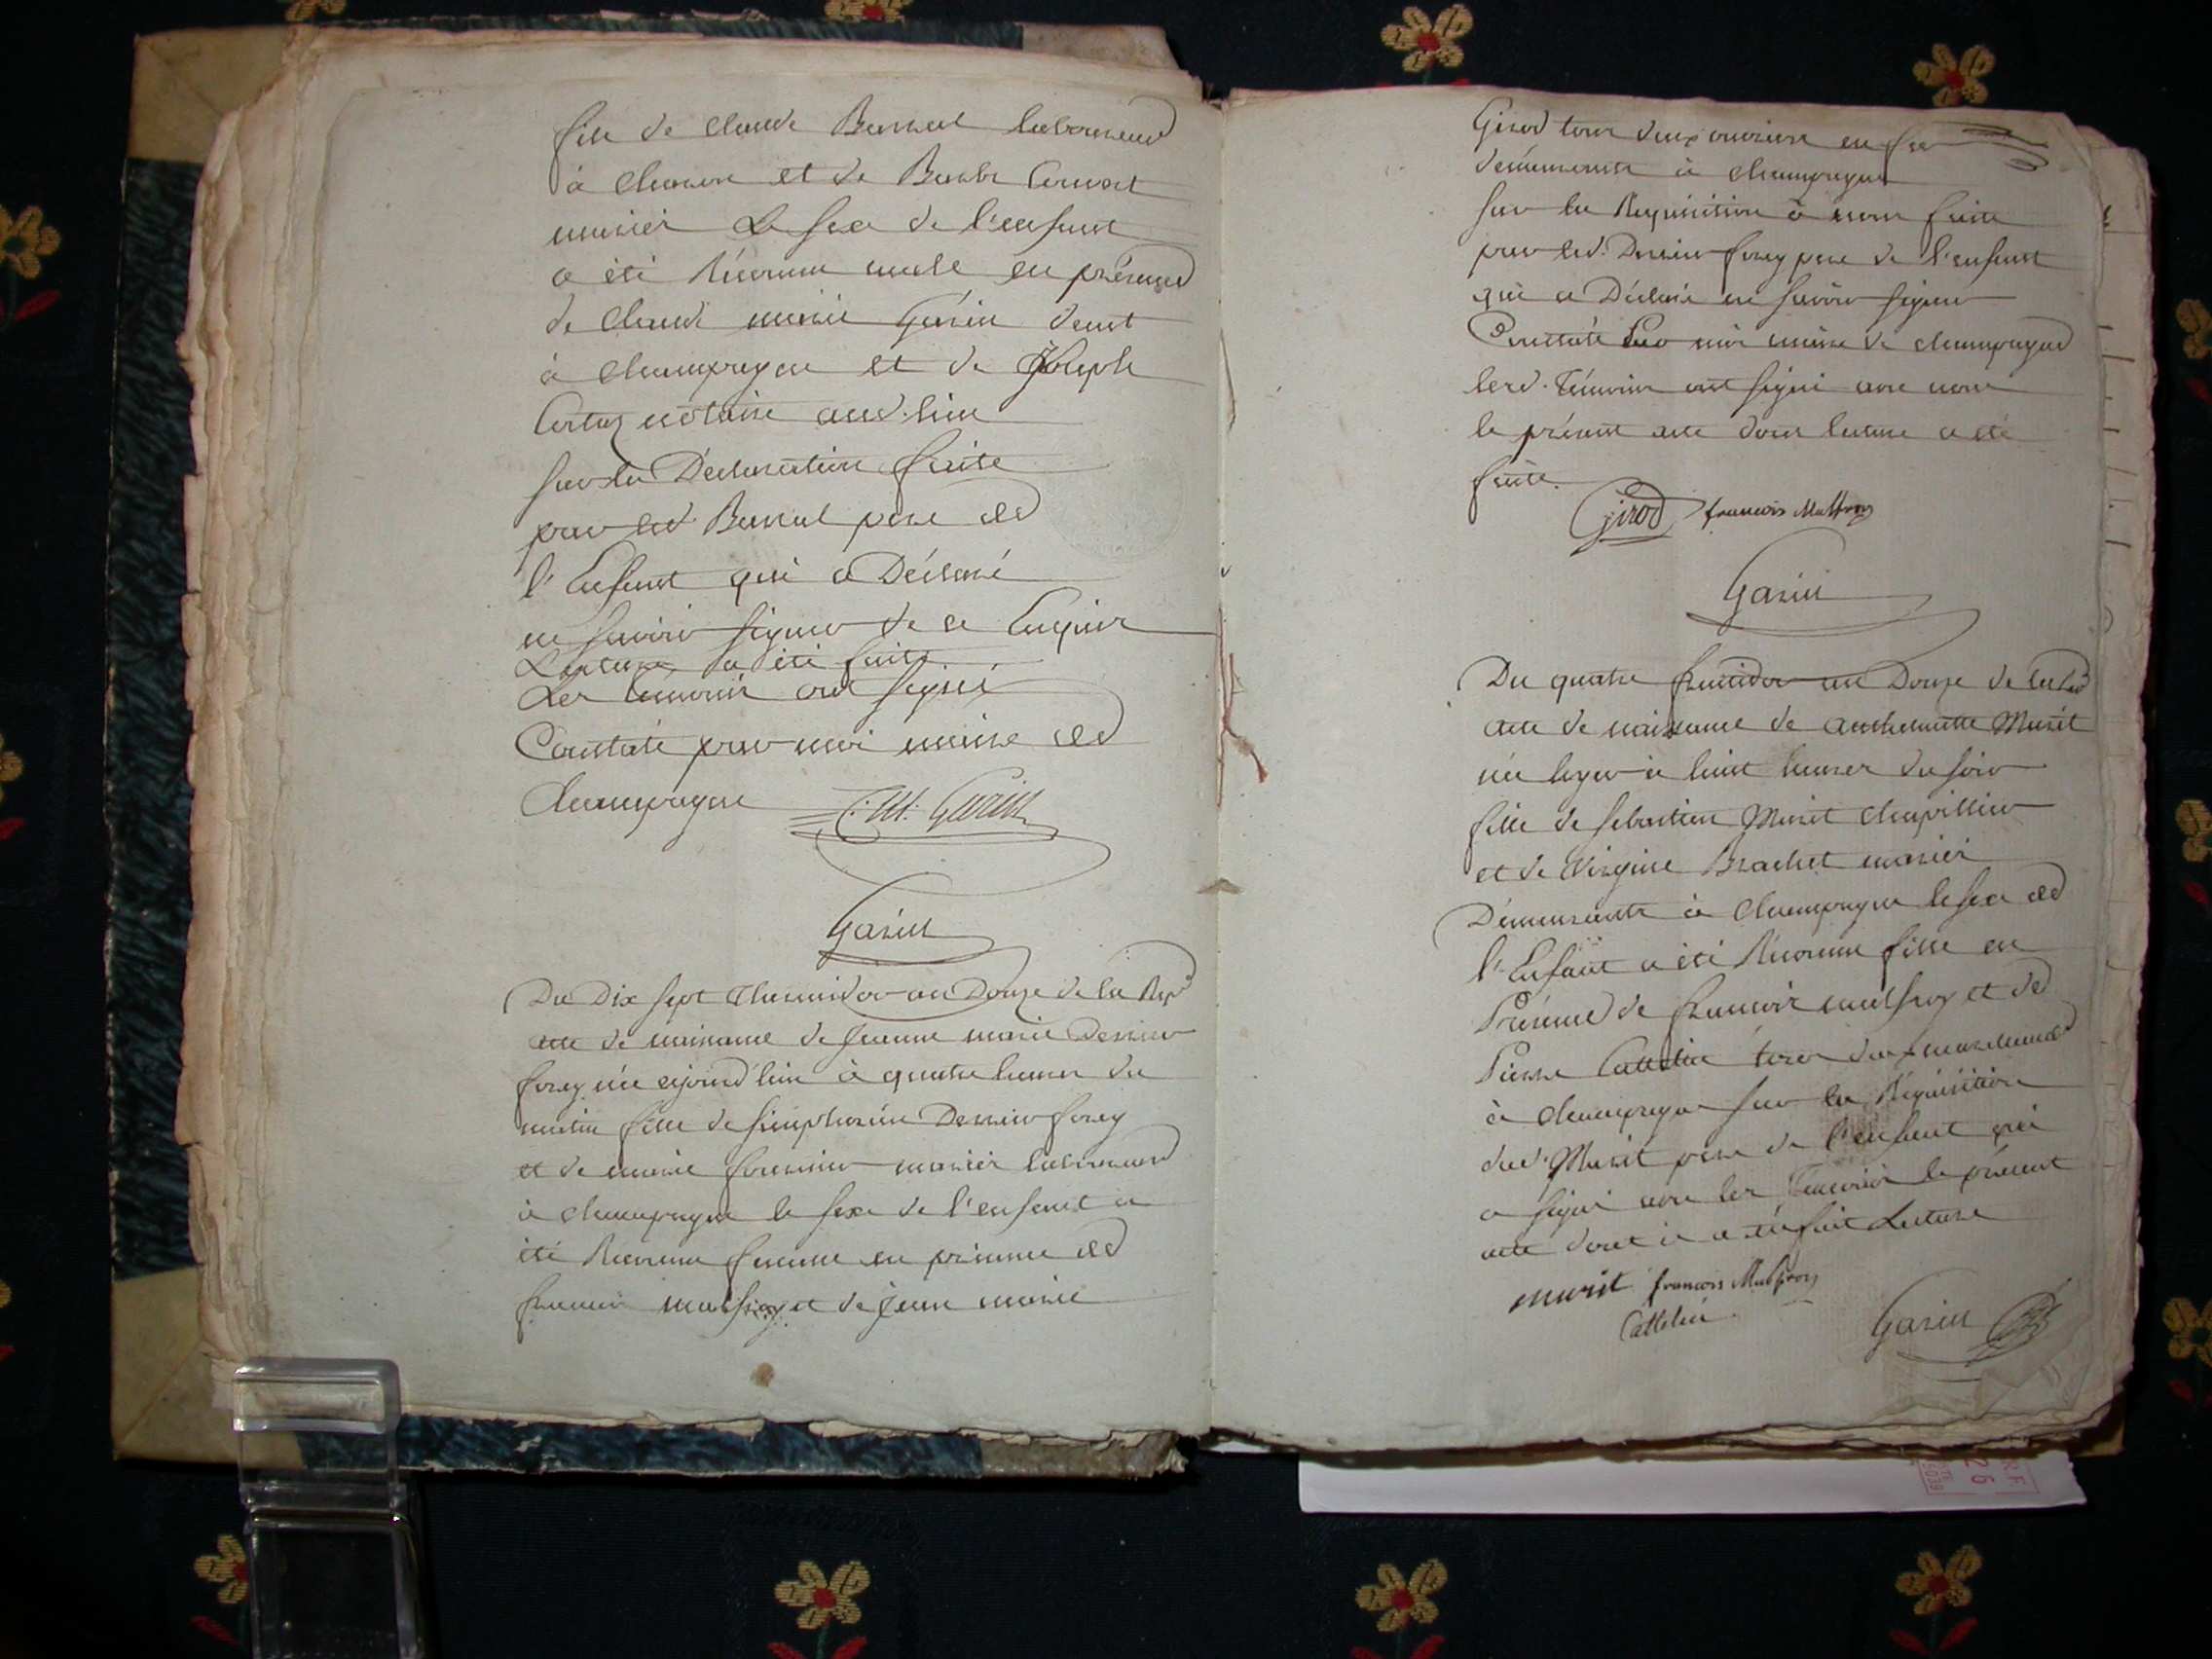 fils de claude Barral laboureur
à et de
mariés Le sexe de l'enfant
a été Réconnu male en présence
de Claude marie Garin demt
à champagne et de Joseph
notaire aud. lieu
sur la Déclaration faite
par led. Barral pere de
l'Enfant qui a Déclaré
ne savoir signer de ce Enquis
Lecture a été faite
Les témoins ont signé
Constaté par moi maire de
Champagne C: M: Garin
Garin
Du Dix sept thermidor an Douze de la Repe
acte de naissance de jeanne marie
forey née ajourd'hui à quatre heures du
matin fille de simphorien forey
et de marie mariés laboureurs
à champagne le sexe de l'enfant a
été Reconnu femme en présence de
francois et de jean marie
Girod tous deux
demeurants à champagne
sur la Réquisition à nous faite
par led. forey pere de l'enfant
qui a Déclaré ne savoir signer
Constaté Par moi maire de champagne
lesd. témoins ont signé avec nous
le présent acte dont lecture a été
faite.
Girod francois
Garin
Du quatre fructidor an Douze de la
acte de naissance de anthelmette
née hyer à huit heures du soir
fille de sebastien
et de Virginie Brachet mariés
Démeurants à champagne le sexe de
l'Enfant a été Réconnu fille en
Présence de francois et de
Pierre Cattelin tous deux
à champagne sur la Réquisition
dud. pere de l'enfant qui
a signé avec les témoins le présent
acte dont il a été fait Lecture
francois
Cattelin
Garin
R.F.
26